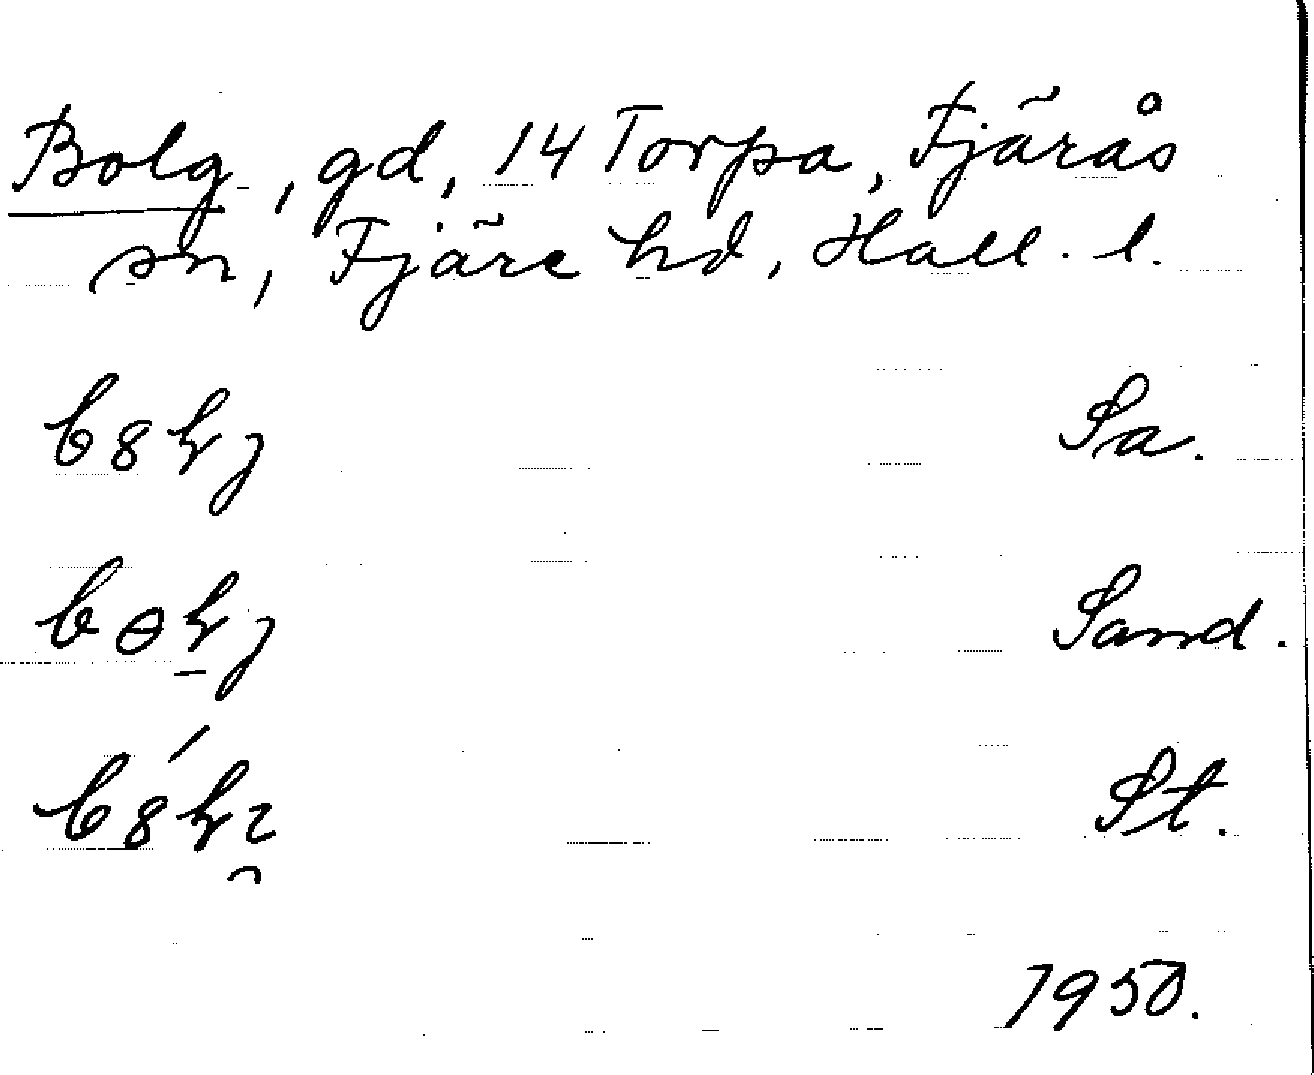 Bolg, gd, 14 Torpa, Fjärås
sn, Fjäre hd, Hall. l.
Sa.
Sand.
St.
1950.